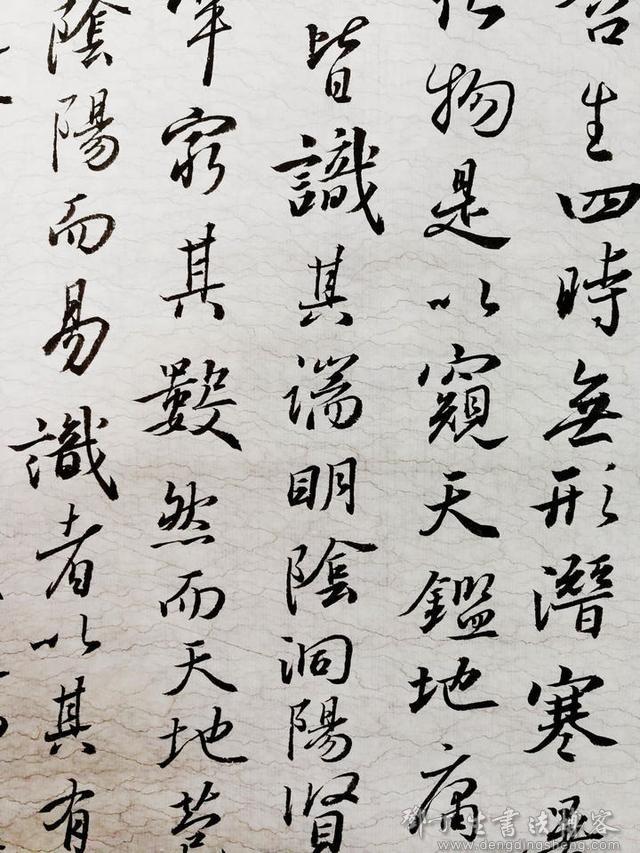 含生四時無形潛寒暑
化物是以窺天鑑地庸
皆識其端明陰洞陽賢
罕窮其數然而天地苞
陰陽而易識者以其有
鄧丁生書法博客
www.dengdingsheng.com